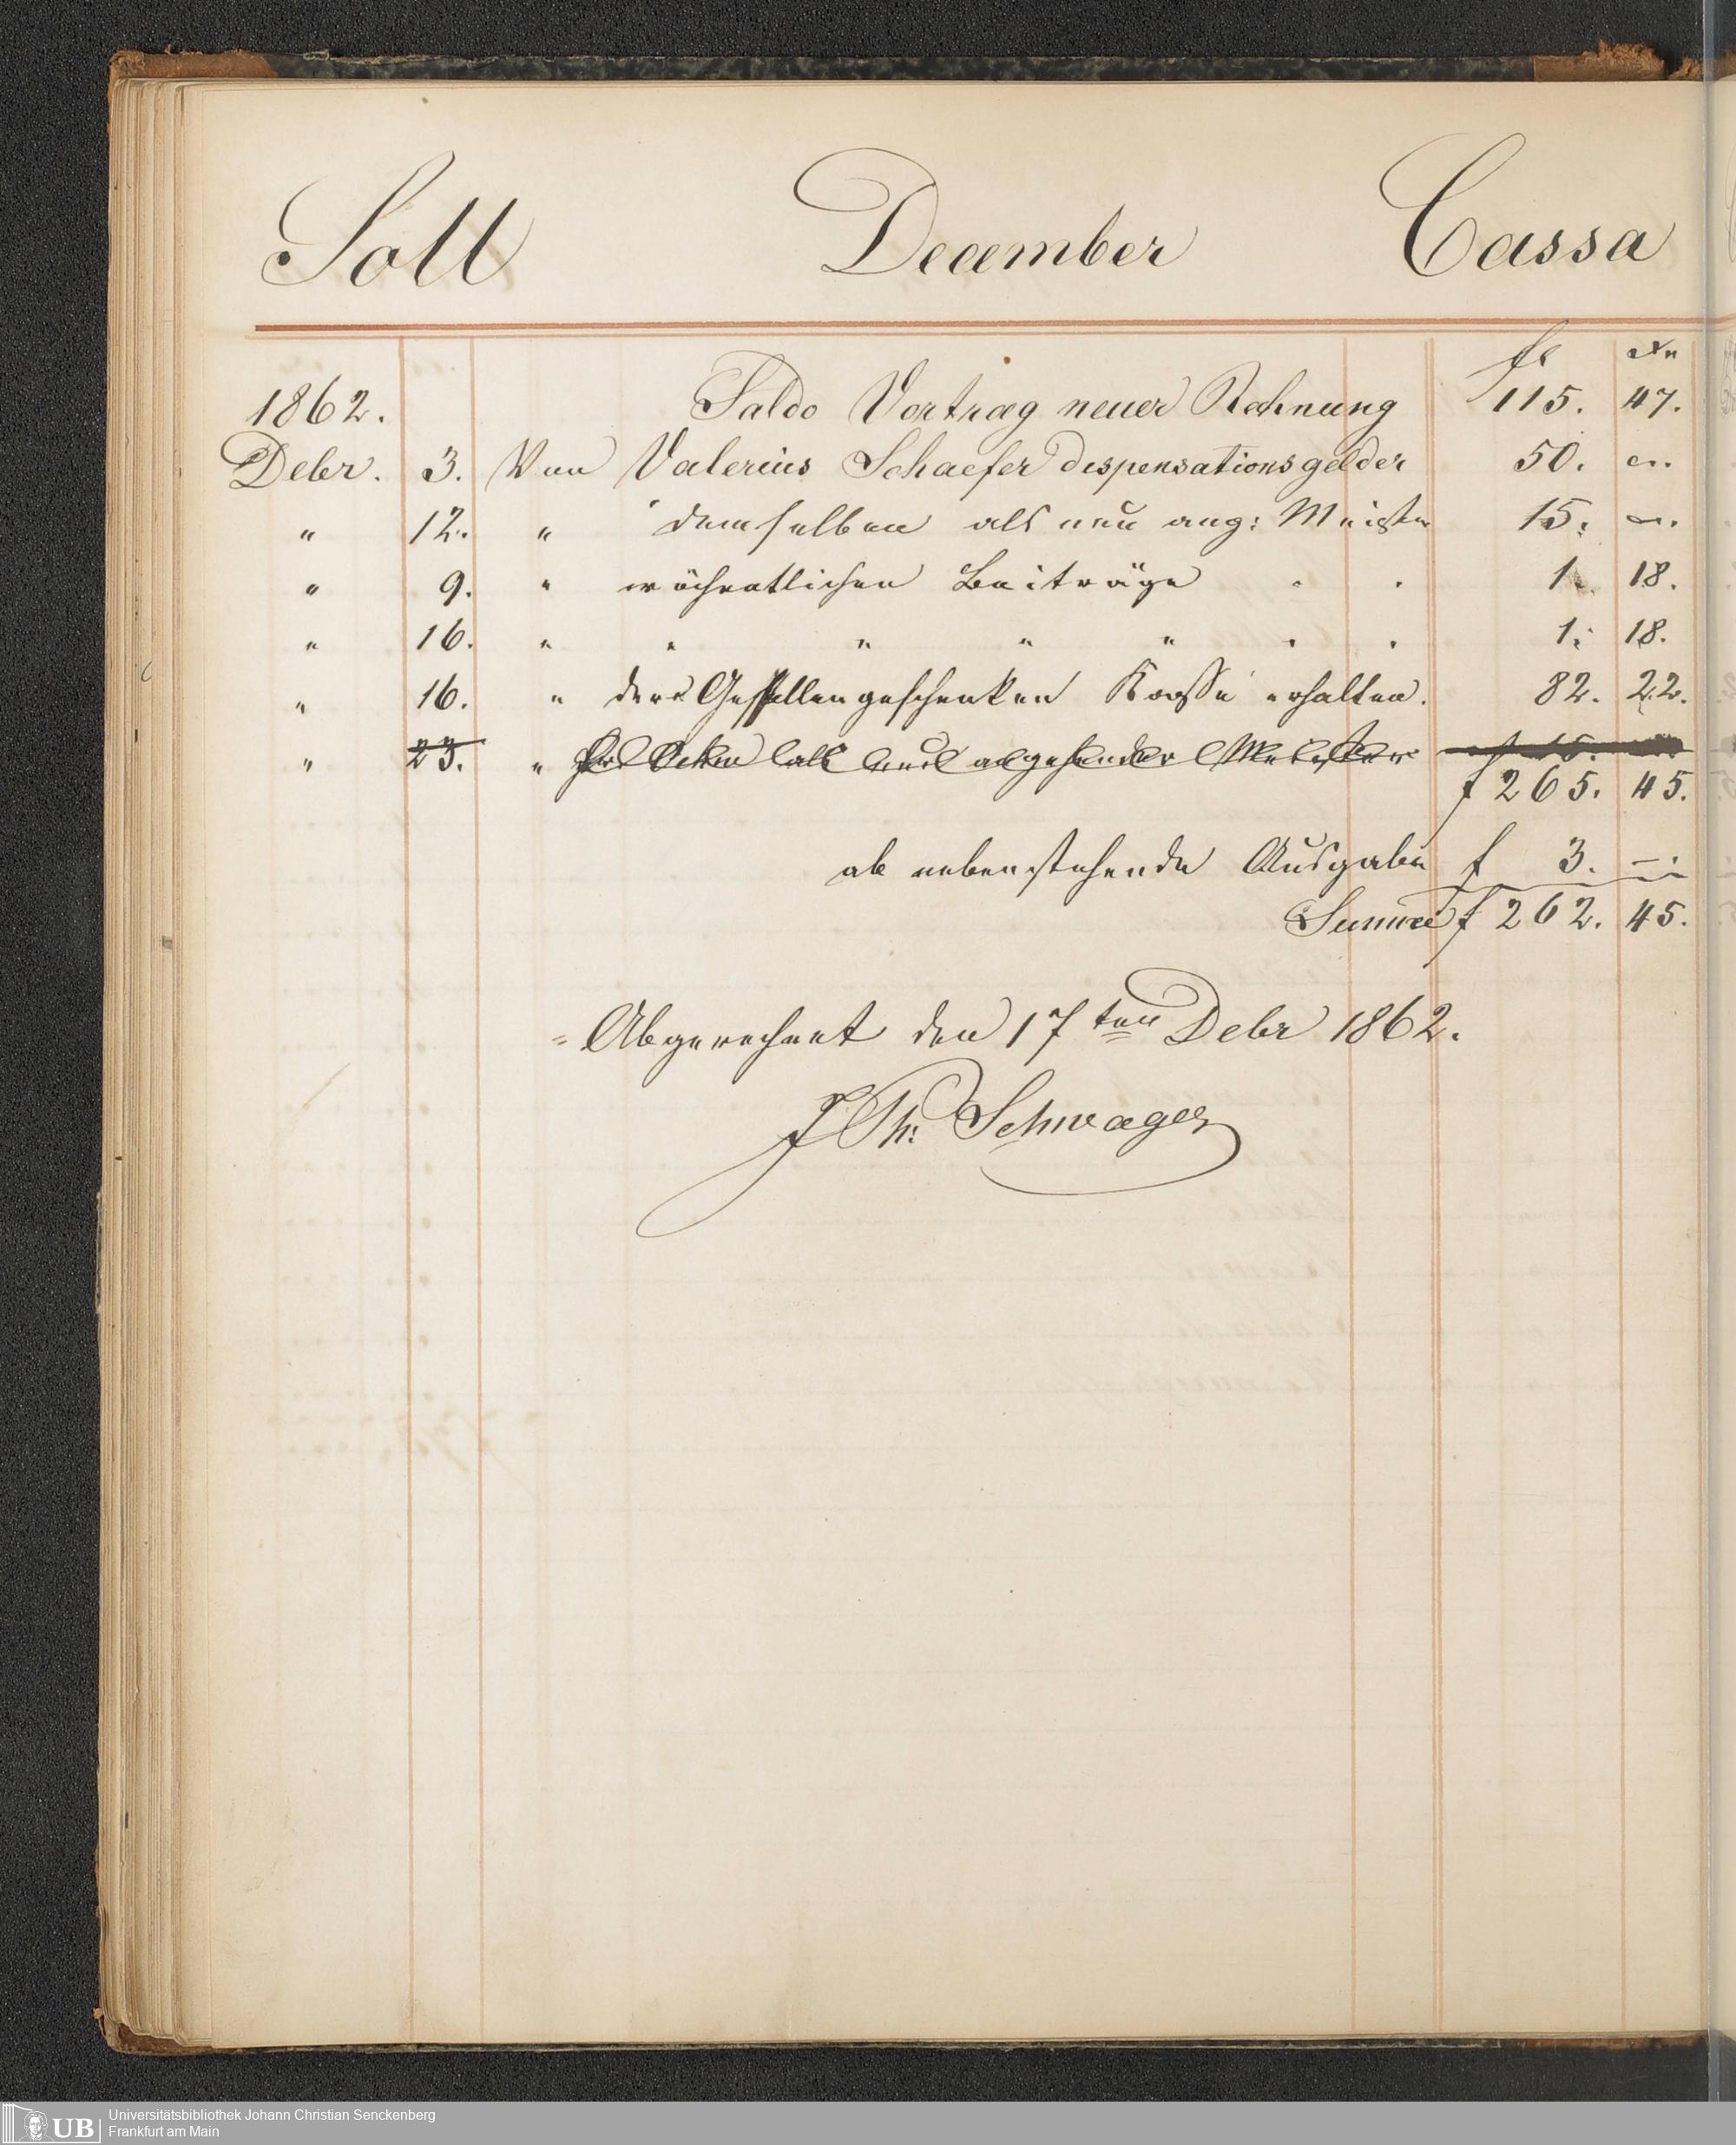 Soll December Cassa
fl Xn
1862. Saldo Vortrag neuer Rechnung 115. 47.
Debr. 3. Von Valerius Schaefer dispensationsgelder 50. „.
" 12. " demselben als neu ang: Meister 15. „.
" 9. " wöchentlichen Beiträge . . 1. 18.
" 16. " " " " " . . 1. 18.
" 16. " der Gesellengeschenken Kasse erhalten. 82. 22.
" 23. " als neu Meister 15.
f 265. 45.
ab nebenstehende Ausgabe f 3. –.
Summe f 262. 45.
Abgerechnet den 17ten Debr 1862.
J Th: Schwager
UB Universitätsbibliothek Johann Christian Senckenberg
Frankfurt am Main